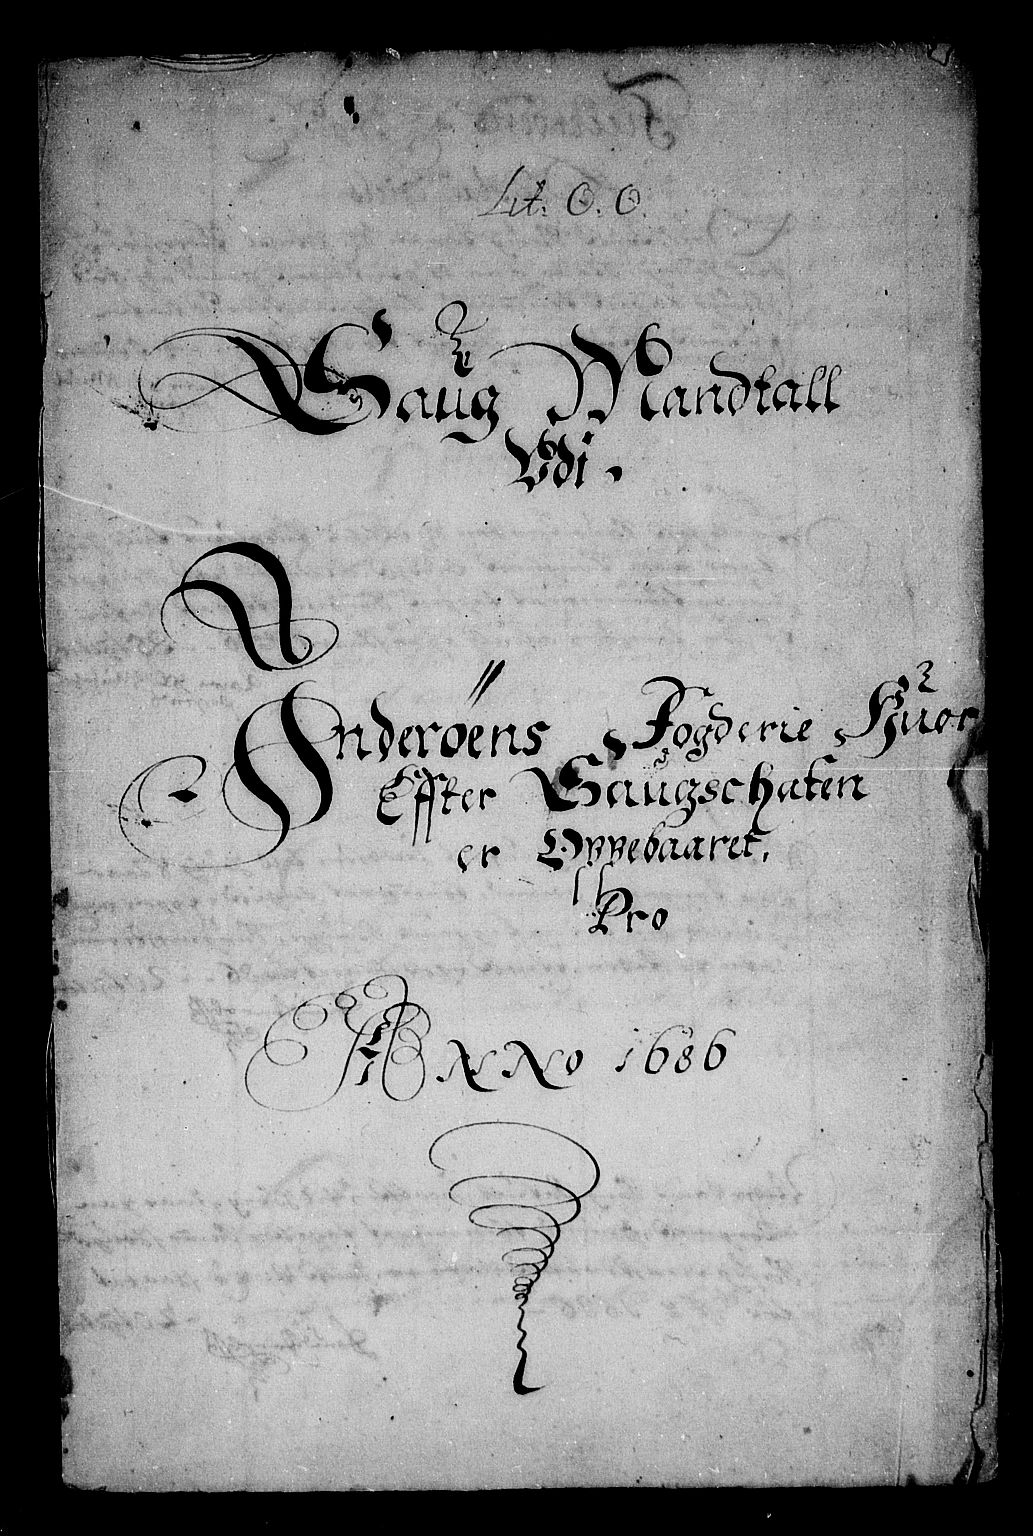 Lit. O. O.
Saug Mandtall
Vdi.
Inderøens Fogderie Huor
Effter Saugschaten
er Oppebaaret.
Pro
ANNo 1686